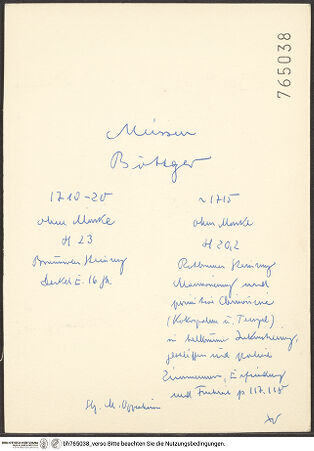 765038
Meissen
Böttger
1710-20
ohne Marke
H 23
Braunes Steinzeug
Deckel E. 16 Jh.
~ 1715
ohne Marke
H 20,2
Rotbraunes Steinzeug
Marmorierung und
(Kokospalmen u. Tempel)
in hellbrauner
geschliffen und poliert
Zimmermann, Erfindung
und Frühzeit p 117. 118
Slg. M. Oppenheim
bh765038_verso Bitte beachten Sie die Nutzungsbedingungen.